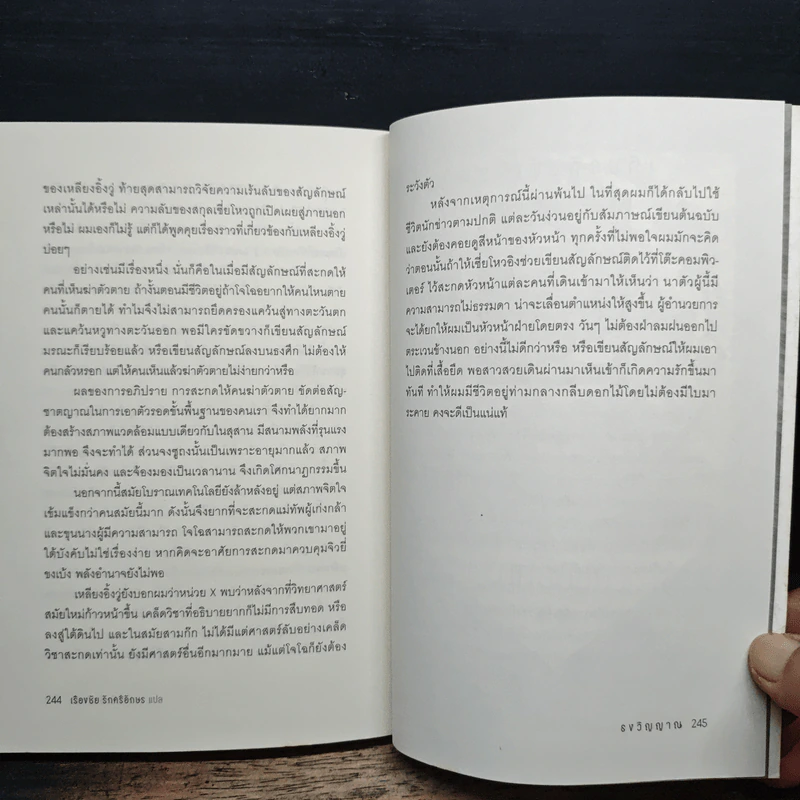 ของเหลียงอิ้งวู่ ท้ายสุดสามารถวิจัยความเร้นลับของสัญลักษณ์
เหล่านั้นได้หรือไม่ ความลับของสกุลเซี่ยโหวถูกเปิดเผยสู่ภายนอก
หรือไม่ ผมเองก็ไม่รู้ แต่ก็ได้พูดคุยเรื่องราวที่เกี่ยวข้องกับเหลียงอิ้งวู่
บ่อยๆ
อย่างเช่นมีเรื่องหนึ่ง นั่นก็คือในเมื่อมีสัญลักษณ์ที่สะกดให้
คนที่เห็นฆ่าตัวตาย ถ้างั้นตอนมีชีวิตอยู่ถ้าโจโฉอยากให้คนไหนตาย
คนนั้นก็ตายได้ ทำไมจึงไม่สามารถยึดครองแคว้นสู่ทางตะวันตก
และแคว้นหวูทางตะวันออก พอมีใครขัดขวางก็เขียนสัญลักษณ์
มรณะก็เรียบร้อยแล้ว หรือเขียนสัญลักษณ์ลงบนธงศึก ไม่ต้องให้
คนกลัวหรอก แต่ให้คนเห็นแล้วฆ่าตัวตายไม่ง่ายกว่าหรือ
ผลของการอภิปราย การสะกดให้คนฆ่าตัวตาย ขัดต่อสัญ-
ชาตญาณในการเอาตัวรอดขั้นพื้นฐานของคนเรา จึงทำได้ยากมาก
ต้องสร้างสภาพแวดล้อมแบบเดียวกับในสุสาน มีสนามพลังที่รุนแรง
มากพอ จึงจะทำได้ ส่วนจงซูถงนั้นเป็นเพราะอายุมากแล้ว สภาพ
จิตใจไม่มั่นคง และจ้องมองเป็นเวลานาน จึงเกิดโศกนาฏกรรมขึ้น
นอกจากนี้สมัยโบราณเทคโนโลยียังล้าหลังอยู่ แต่สภาพจิตใจ
เข้มแข็งกว่าคนสมัยนี้มาก ดังนั้นจึงยากที่จะสะกดแม่ทัพผู้เก่งกล้า
และขุนนางผู้มีความสามารถ โจโฉสามารถสะกดให้พวกเขามาอยู่
ใต้บังคับไม่ใช่เรื่องง่าย หากคิดจะอาศัยการสะกดมาควบคุมจิวยี่
ขงเบ้ง พลังอำนาจยังไม่พอ
เหลียงอิ้งวู่ยังบอกผมว่าหน่วย X พบว่าหลังจากที่วิทยาศาสตร์
สมัยใหม่ก้าวหน้าขึ้น เคล็ดวิชาที่อธิบายยากก็ไม่มีการสืบทอด หรือ
ลงสู่ใต้ดินไป และในสมัยสามก๊ก ไม่ได้มีแต่ศาสตร์ลับอย่างเคล็ด
วิชาสะกดเท่านั้น ยังมีศาสตร์อื่นอีกมากมาย แม้แต่โจโฉก็ยังต้อง
244 เรืองชัย รักศรีอักษร แปล
ระวังตัว
หลังจากเหตุการณ์นี้ผ่านพ้นไป ในที่สุดผมก็ได้กลับไปใช้
ชีวิตนักข่าวตามปกติ แต่ละวันง่วนอยู่กับสัมภาษณ์เขียนต้นฉบับ
และยังต้องคอยดูสีหน้าของหัวหน้า ทุกครั้งที่ไม่พอใจผมมักจะคิด
ว่าตอนนั้นถ้าให้เซี่ยโหวอิงช่วยเขียนสัญลักษณ์ติดไว้ที่โต๊ะคอมพิว-
เตอร์ ไว้สะกดหัวหน้าแต่ละคนที่เดินเข้ามาให้เห็นว่า นาตัวผู้นี้มี
ความสามารถไม่ธรรมดา น่าจะเลื่อนตำแหน่งให้สูงขึ้น ผู้อำนวยการ
จะได้ยกให้ผมเป็นหัวหน้าฝ่ายโดยตรง วันๆ ไม่ต้องฝ่าลมฝนออกไป
ตระเวนข้างนอก อย่างนี้ไม่ดีกว่าหรือ หรือเขียนสัญลักษณ์ให้ผมเอา
ไปติดที่เสื้อยืด พอสาวสวยเดินผ่านมาเห็นเข้าก็เกิดความรักขึ้นมา
ทันที ทำให้ผมมีชีวิตอยู่ท่ามกลางกลีบดอกไม้โดยไม่ต้องมีใบมา
ระคาย คงจะดีเป็นแน่แท้
ธงวิญญาณ 245